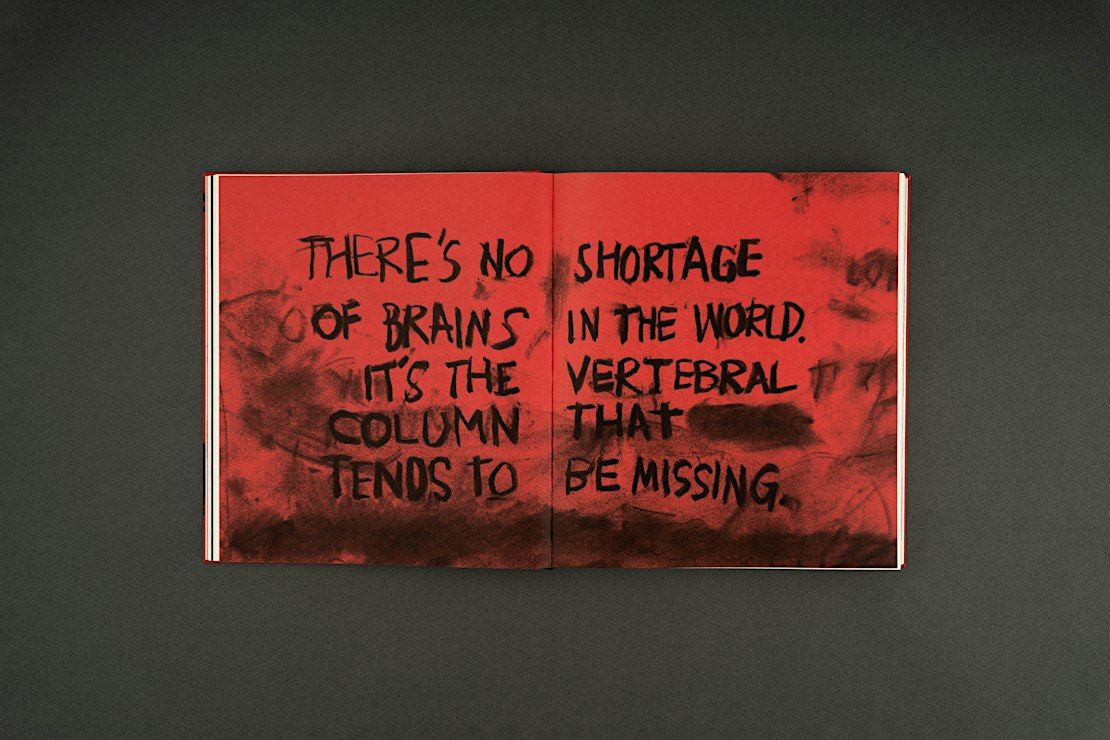 THERE'S NO SHORTAGE
OF BRAINS IN THE WORLD.
IT'S THE VERTEBRAL
COLUMN THAT
TENDS TO BE MISSING.